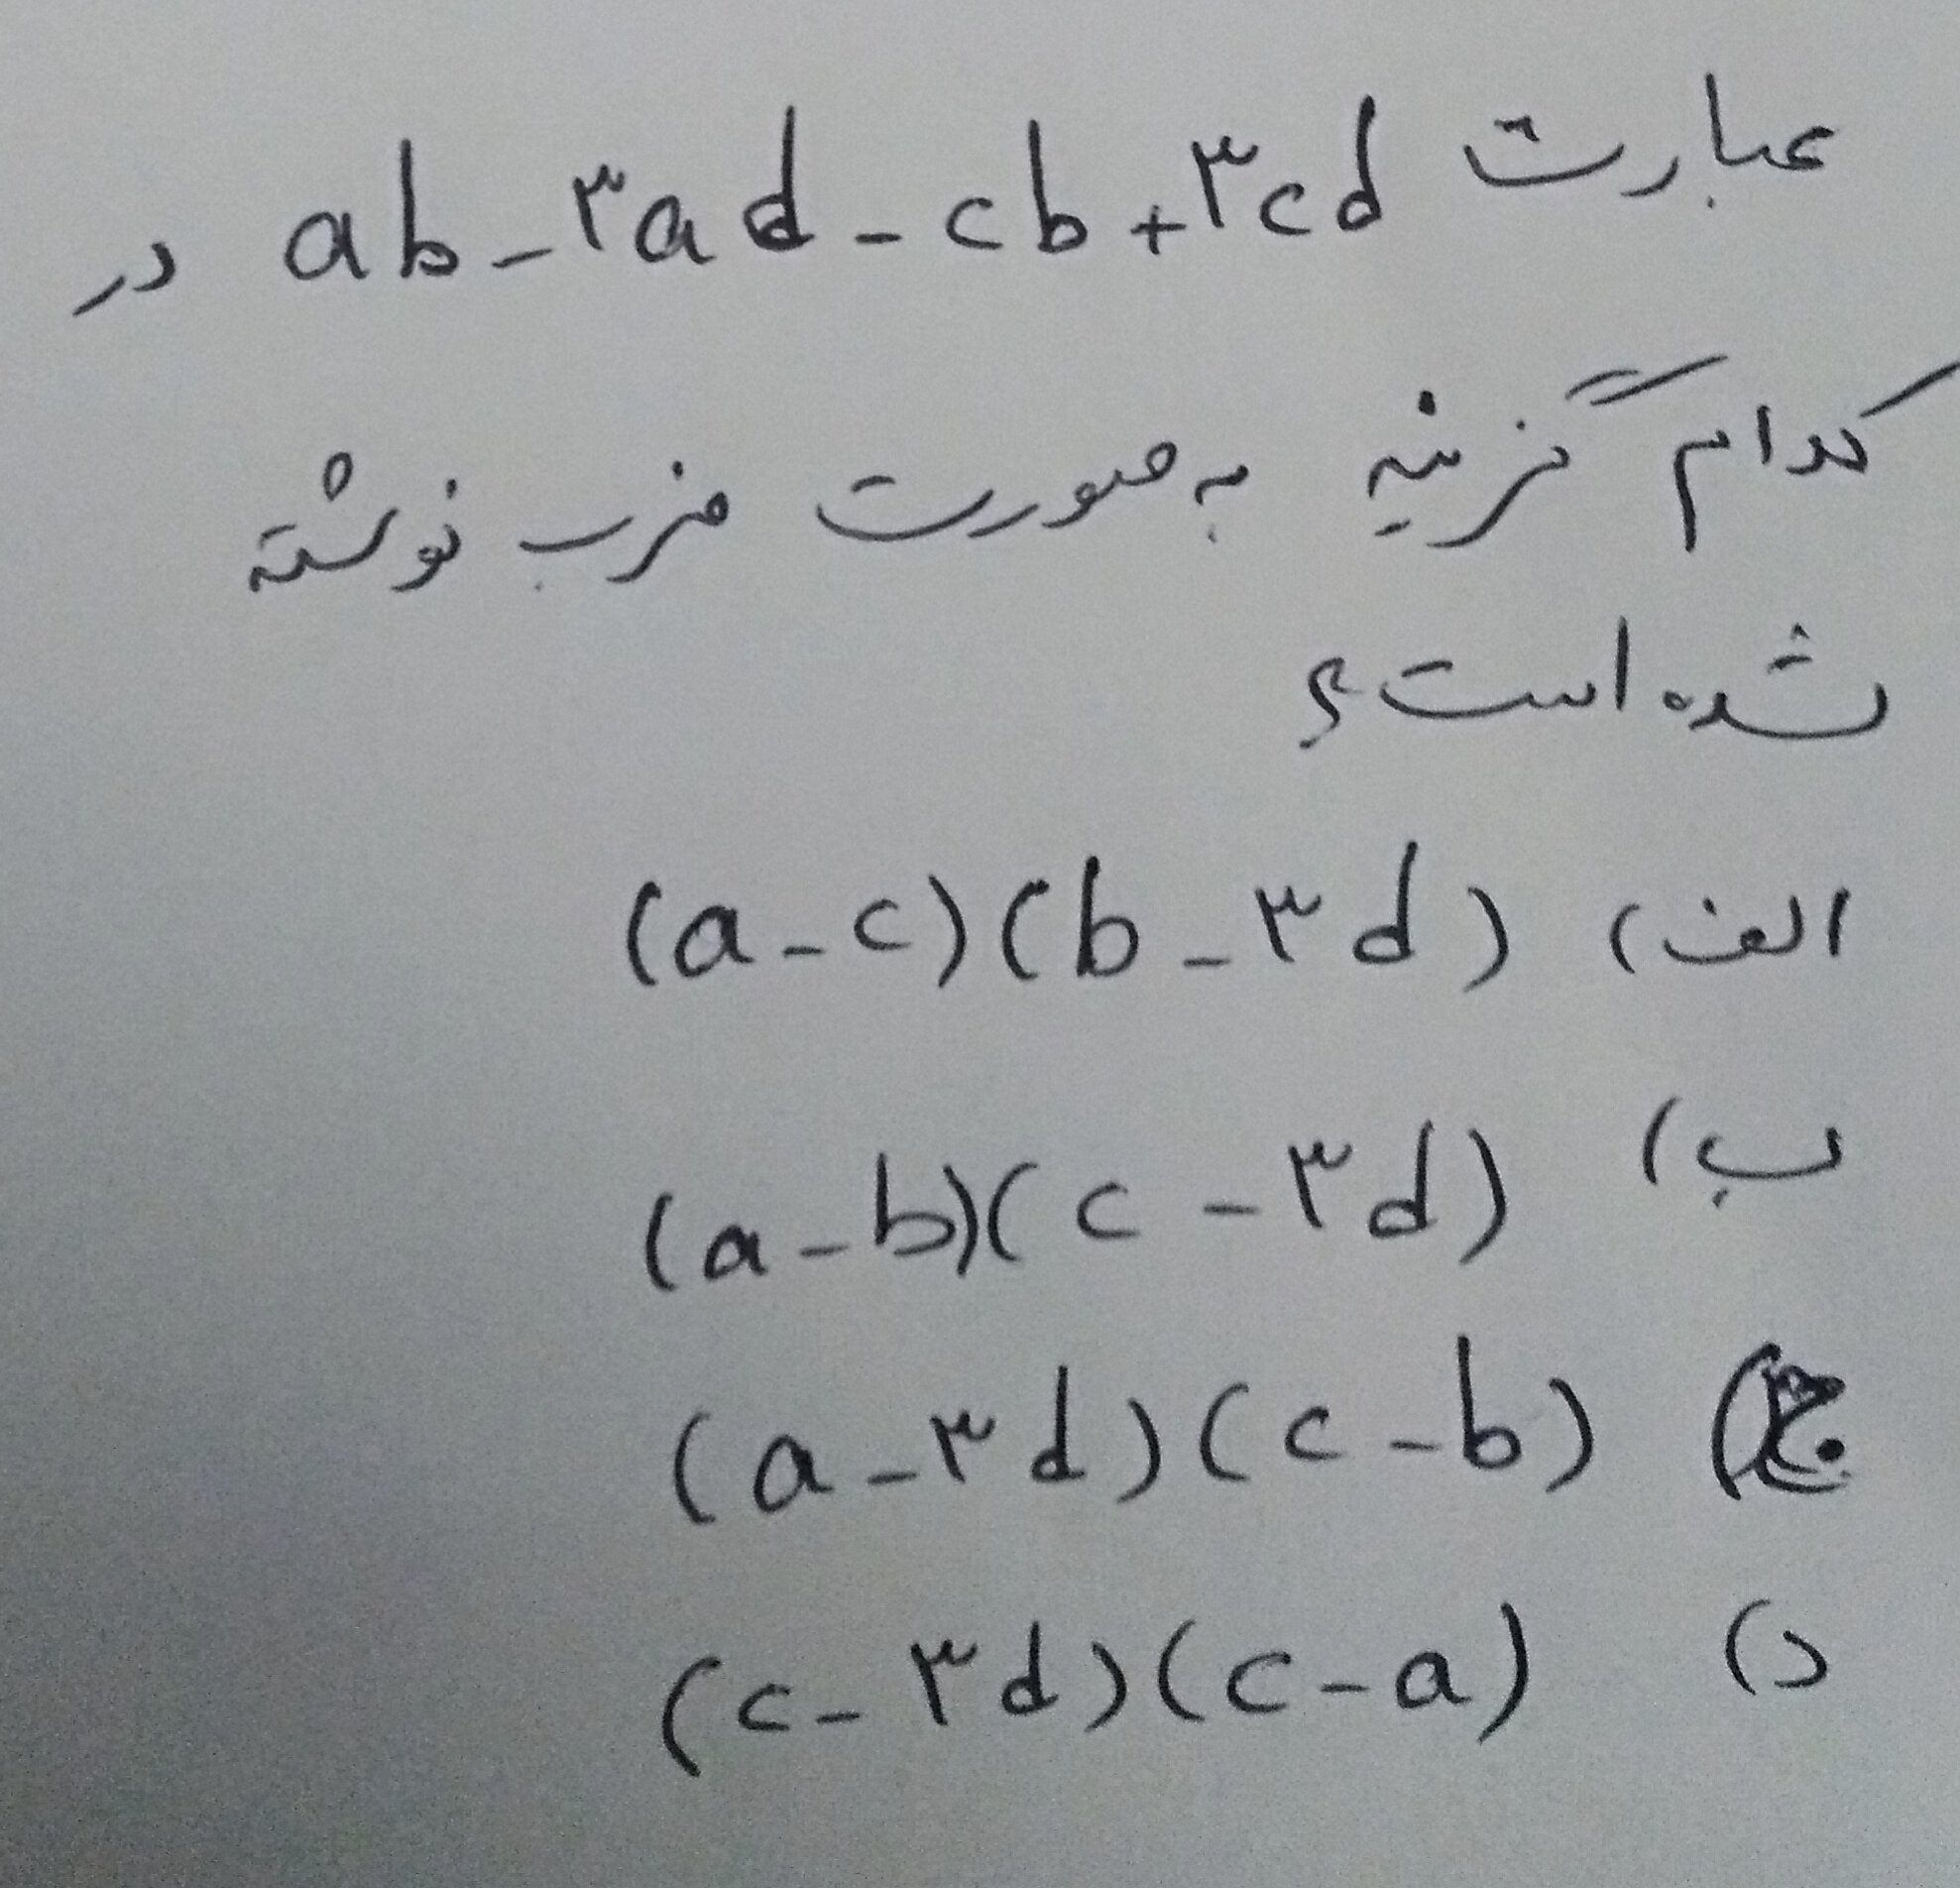 عبارت ab - ۳ad - cb + ۳cd در
کدام گزینه به صورت ضرب نوشته
شده است؟
الف) (a - c)(b - ۳d)
ب) (a - b)(c - ۳d)
ج) (a - ۳d)(c - b)
د) (c - ۳d)(c - a)